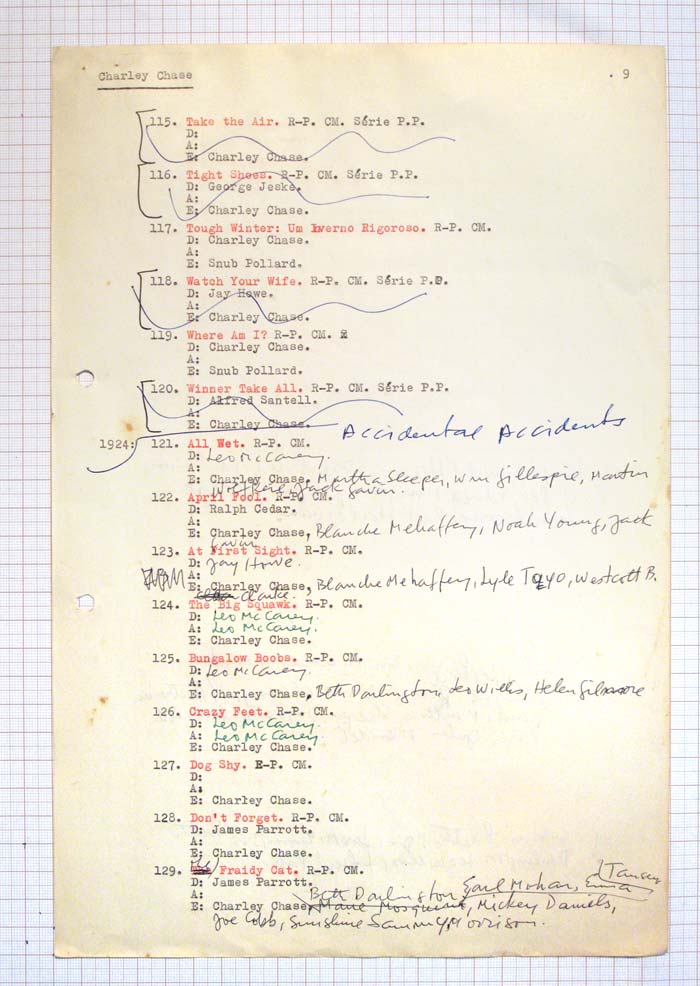 Charley Chase
. 9
115. Take the Air. R-P. CM. Série P.P.
D:
A:
E: Charley Chase.
116. Tight Shoes. R-P. CM. Série P.P.
D: George Jeske.
A:
E: Charley Chase.
117. Tough Winter: Um Inverno Rigoroso. R-P. CM.
D: Charley Chase.
A:
E: Snub Pollard.
118. Watch Your Wife. R-P. CM. Série P.P.
D: Jay Howe.
A:
E: Charley Chase.
119. Where Am I? R-P. CM.
D: Charley Chase.
A:
E: Snub Pollard.
120. Winner Take All. R-P. CM. Série P.P.
D: Alfred Santell.
A:
E: Charley Chase.
Accidental Accidents
1924: 121. All Wet. R-P. CM.
D: Leo McCarey.
A:
E: Charley Chase, Martha Sleeper, Wm Gillespie, Martin
Wolfkeil, Jack Gavin.
122. April Fool. R-P. CM.
D: Ralph Cedar.
A:
E: Charley Chase, Blanche Mehaffey, Noah Young, Jack
Gavin
123. At First Sight. R-P. CM.
D: Jay Howe.
A:
E: Charley Chase, Blanche Mehaffey, Lyle Tayo, Westcott B.
Clarke.
124. The Big Squawk. R-P. CM.
D: Leo McCarey.
A: Leo McCarey.
E: Charley Chase.
125. Bungalow Boobs. R-P. CM.
D: Leo McCarey.
A:
E: Charley Chase, Beth Darlington, Leo Willis, Helen Gilmore
126. Crazy Feet. R-P. CM.
D: Leo McCarey.
A: Leo McCarey.
E: Charley Chase.
127. Dog Shy. E-P. CM.
D:
A:
E: Charley Chase.
128. Don't Forget. R-P. CM.
D: James Parrott.
A:
E: Charley Chase.
129. Fraidy Cat. R-P. CM.
D: James Parrott.
Tansey
A: Beth Darlington, Earl Mohan, Emma
E: Charley Chase, Marie Mosquini, Mickey Daniels,
Joe Cobb, Sunshine Sammy Morrison.